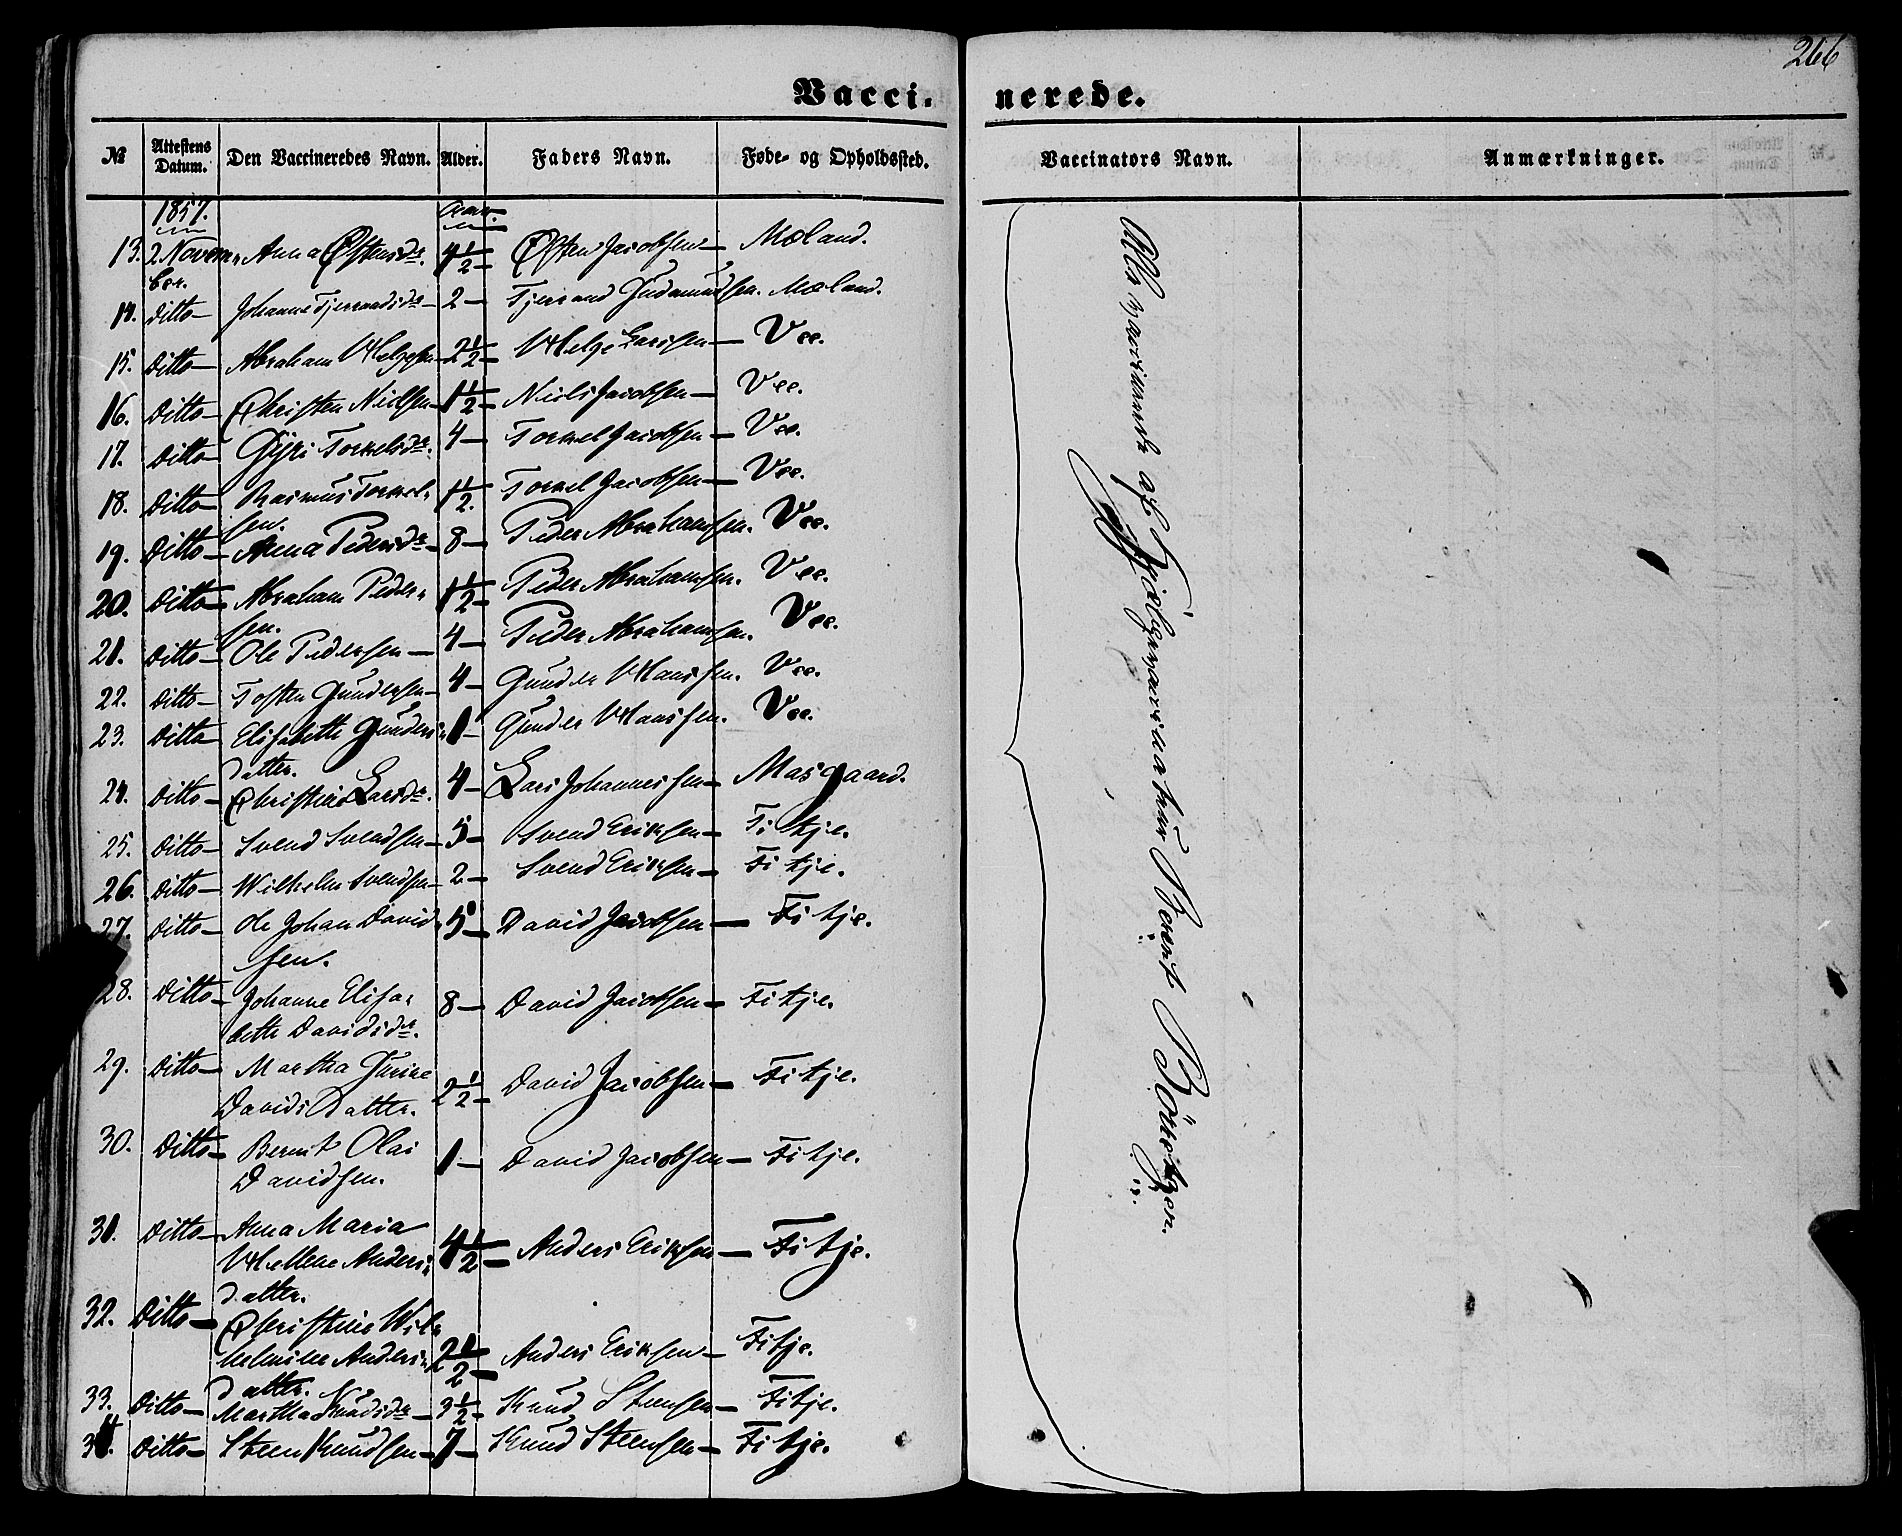 266
Vacci- nerede.
№ Attestens Datum. Den Vaccineredes Navn. Alder. Faders Navn. Føde- og Opholdssted. Vaccinators Navn. Anmærkninger.
1857. Aar.
13. 2 Novem- Anna Østensdr. 4 1/2 – Østen Jacobsen – Mæland.
ber.
14. ditto – Johanne Tjerandsdr – 2 – Tjerand Gudmundsen. Mæland.
15. Ditto – Abraham Helgesen – 2 1/2 – Helge Larssen – Vee.
16. Ditto – Christen Nielsen – 1 1/2 – Niels Jacobsen – Vee.
17. Ditto – Gyri Torkelsdr. 4 – Torkel Jacobsen – Vee.
18. Ditto – Rasmus Torkel- 1 1/2. Torkel Jacobsen – Vee.
sen.
19. Ditto – Anna Pedersdr – 8 – Peder Abrahamsen. Vee.
20. Ditto – Abraham Peder- 1 1/2 – Peder Abrahamsen. Vee.
sen.
21. Ditto – Ole Pedersen – 4 – Peder Abrahamsen. Vee.
22. Ditto – Tosten Gundersen – 4 – Gunder Hanssen. Vee.
23. Ditto Elisabeth Gunders- 1 – Gunder Hanssen. Vee.
datter.
24. Ditto – Christine Larsdr. 4 – Lars Johannessen – Masgaard.
25. Ditto – Svend Svendsen – 5 – Svend Eriksen – Fitje.
26. Ditto – Wilhelm Svendsen – 2 – Svend Eriksen – Fitje.
27. Ditto – Ole Johan David- 5 – David Jacobsen – Fitje.
sen.
28. Ditto – Johanne Elisa- 8 – David Jacobsen – Fitje.
beth Davidsdr.
29. Ditto – Martha Gurine 2 1/2 – David Jacobsen – Fitje.
Davids Datter.
30. Ditto – Bernt Olai 1 – David Jacobsen – Fitje.
Davidsen.
31. Ditto – Anna Maria 4 1/2 – Anders Eriksen – Fitje.
Hellene Anders-
datter.
32. Ditto – Christine Wil- 2 1/2 – Anders Eriksen – Fitje.
helmine Anders-
datter.
33. Ditto – Martha Knudsdr – 3 1/2 – Knud Steensen – Fitje.
34. Ditto – Steen Knudsen – 7 – Knud Steensen – Fitje.
Alle vaccinerede af Hjælpevaccinateur Bernt Rönstgen.